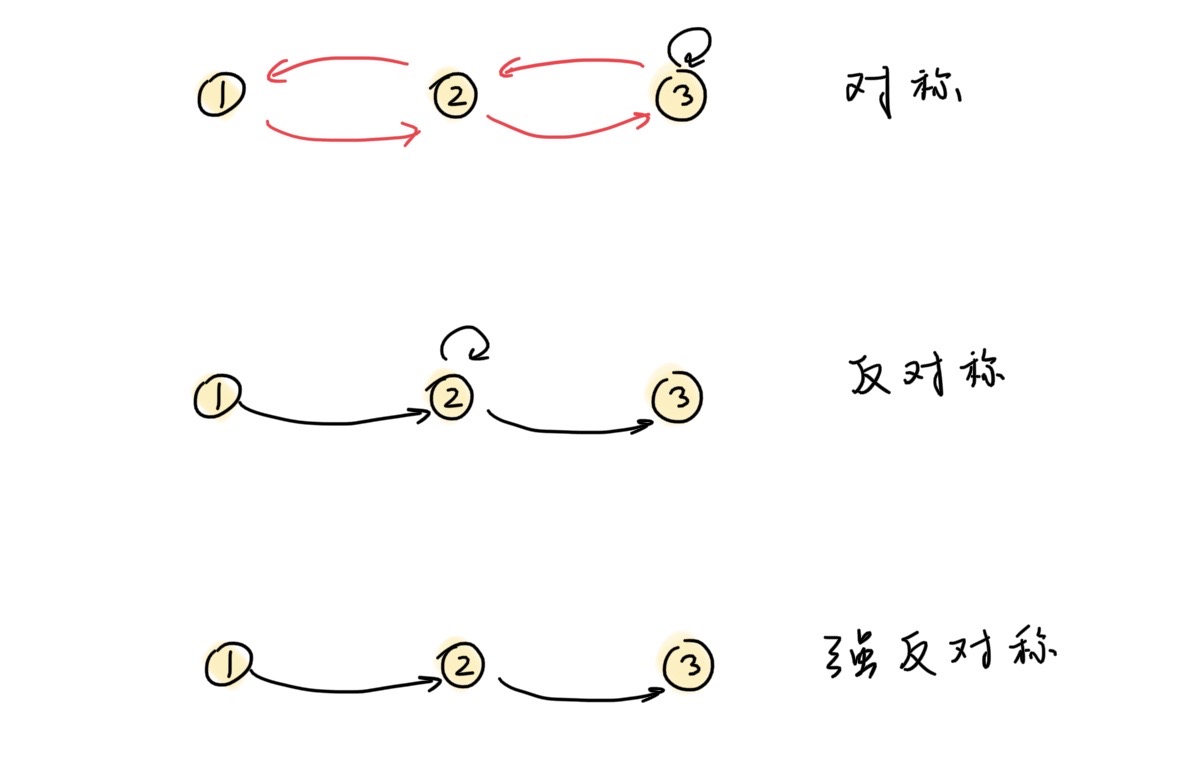 1 2 3 对称
1 2 3 反对称
1 2 3 强反对称